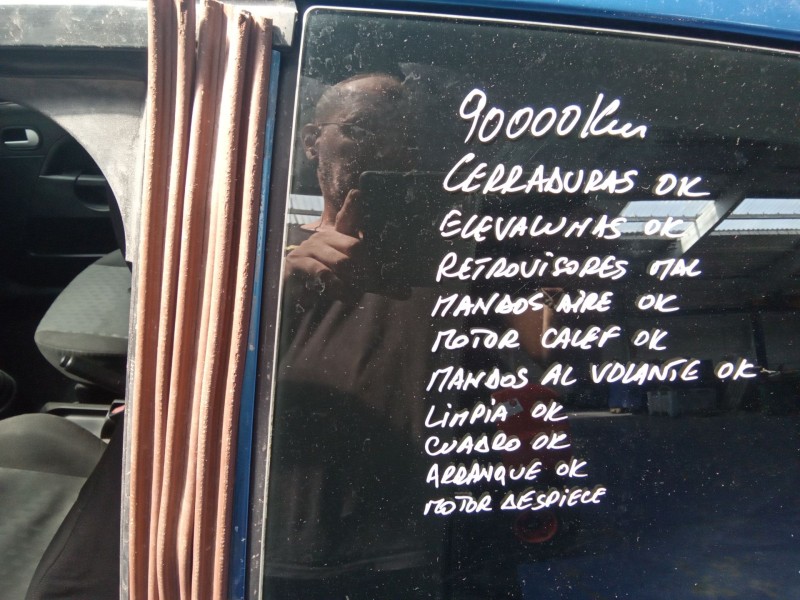 90000Km
CERRADURAS OK
ELEVALUNAS OK
RETROVISORES MAL
MANDOS AIRE OK
MOTOR CALEF OK
MANDOS AL VOLANTE OK
LIMPIA OK
CUADRO OK
ARRANQUE OK
MOTOR DESPIECE